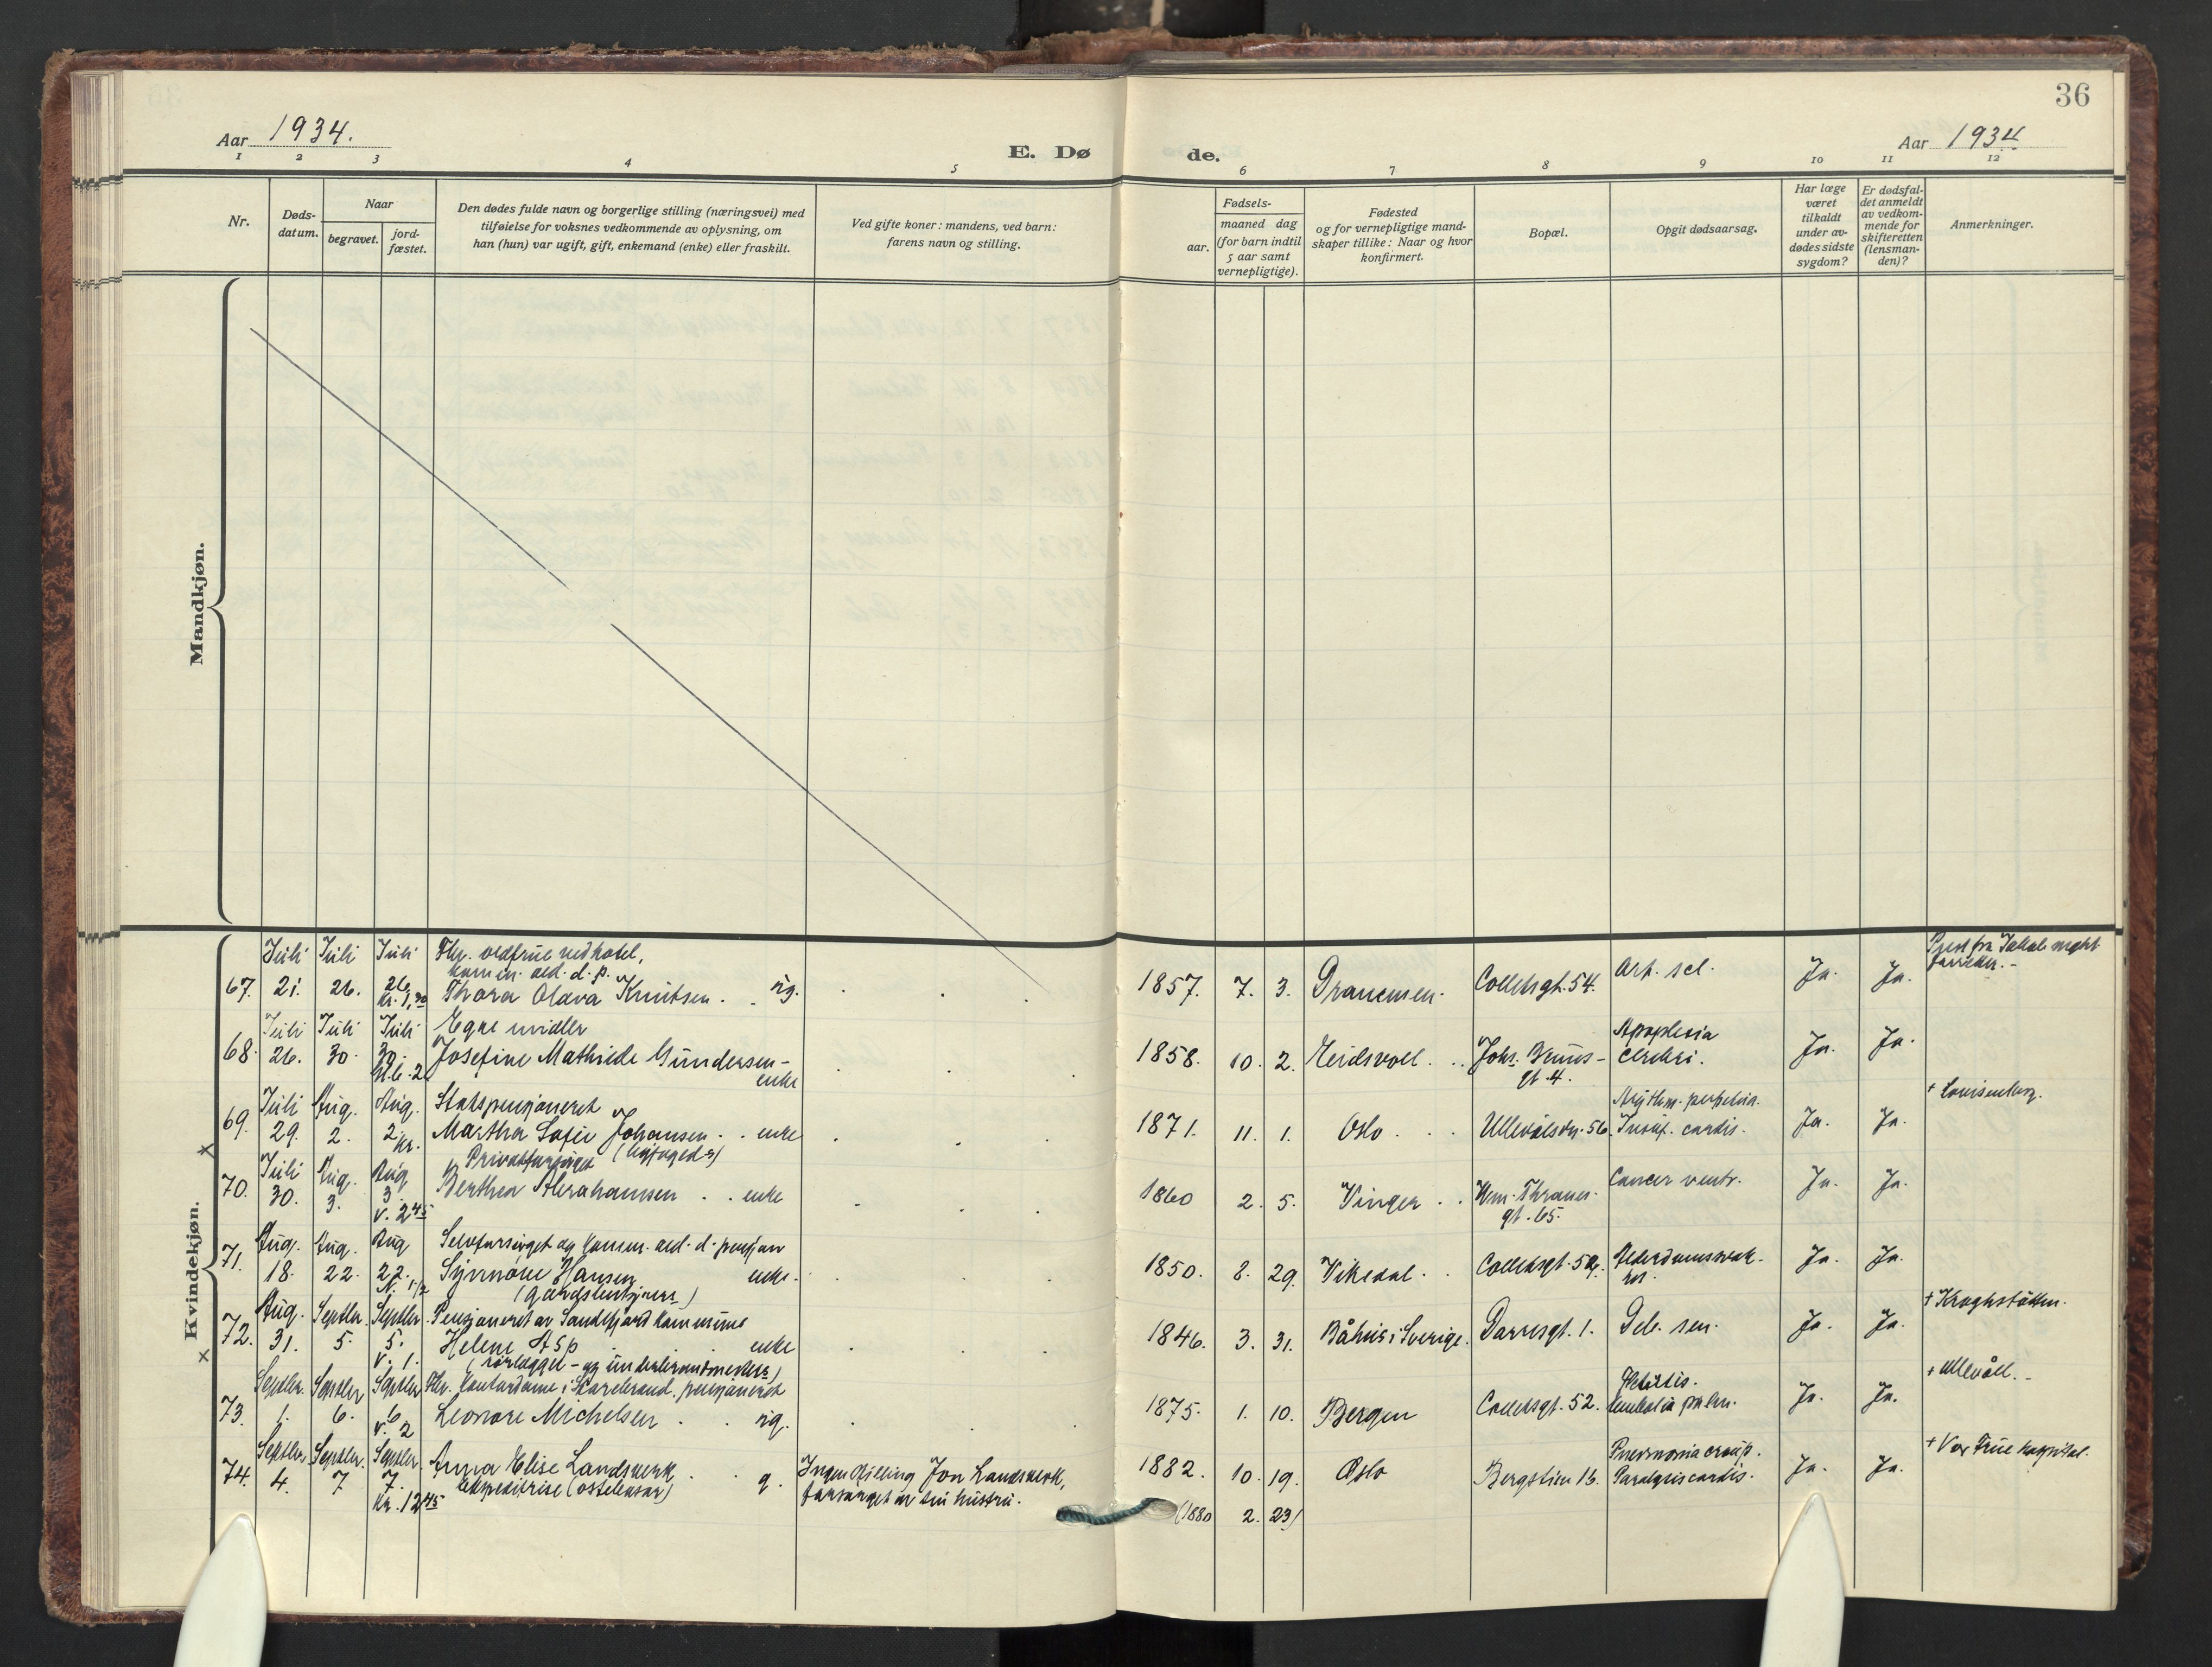 36
Aar 1934.
Aar 1934.
E. Dø de.
1 2 3 4 5 6 7 8 9 10 11 12
Nr.
Døds-
datum.
Naar
begravet.
jord-
fæstet.
Den dødes fulde navn og borgerlige stilling (næringsvei) med
tilføielse for voksnes vedkommende av oplysning, om
han (hun) var ugift, gift, enkemand (enke) eller fraskilt.
Ved gifte koner: mandens, ved barn:
farens navn og stilling.
aar.
Fødsels-
maaned dag
(for barn indtil
5 aar samt
vernepligtige).
Fødested
og for vernepligtige mand-
skaper tillike: Naar og hvor
konfirmert.
Bopæl.
Opgit dødsaarsag.
Har læge
været
tilkaldt
under av-
dødes sidste
sygdom?
Er dødsfal-
det anmeldt
av vedkom-
mende for
skifteretten
(lensman-
den)?
Anmerkninger.
Mandkjøn.
Kvindekjøn.
Juli Juli Juli Fhv. oldfrue ved hotel,
komm. ald. d. p.
67. 21. 26. 26. Thora Olava Knutsen. ug. 1857. 7. 3. Drammen. Colletsgt. 54. Art. scl. Ja. Ja.
Juli Juli Juli Egne midler Apoplexia
68. 26. 30. 30. Josefine Mathilde Gundersen - enke 1858. 10. 2. Eidsvoll. Johs. Bruns- gt. 4. cerebri. Ja. Ja.
Juli Aug. Aug. Statspensjoneret
69. 29. 2. 2. Kr. Martha Sofie Johansen. enke 1871. 11. 1. Oslo Ullevålsvn. 56. Insuf. cordis. Ja. Ja. + Louisenberg.
Juli Aug. Aug Privatforsørget
70. 30. 3. 3. V. 2 45 Berthea Abrahamsen enke 1860 2. 5. Vinger Wm. Thranes. gt. 65. Cancer ventr. Ja. Ja.
Aug. Aug. Aug Selvforsørget og komm. ald. d. pensjon
71. 18. 22. 22. N. 1/2 Hansen enke. 1850. 8. 29. Vikedal Colletsgt. 52 Alderdomssvak- Ja. Ja.
Aug. Septbr. Septbr. Pensjoneret av Sandefjord kommune
72. 31. 5. 5. V. 1. Helene Asp enke 1846. 3. 31. Båhus i Sverige. Darresgt. 1. Deb. sen. Ja. Ja. + Kroghstøtten.
(rørlegger - og underbrandmesters)
Septbr. Septbr Septbr Fhv. kontordame i Storebrand. pensjoneret
73. 1. 6. 6. V. 2 Leonore Michelsen ug. 1875. 1. 10. Bergen Colletsgt. 52. embolia pulm. Ja. Ja. + Ullevåll.
Septbr. Septbr. Septbr. Pneumonia croup.
74. 4. 7 7. Kr. 12 45 Anna Elise Landsverk g. Ingen stilling Jon Landsverk, 1882. 10. 19. Oslo Bergstien 16. Paralysis cordis. Ja. Ja. + Vor Frue hospital.
Ekspeditrise (ostebasar) forsørget av sin hustru. (1880 2. 23)